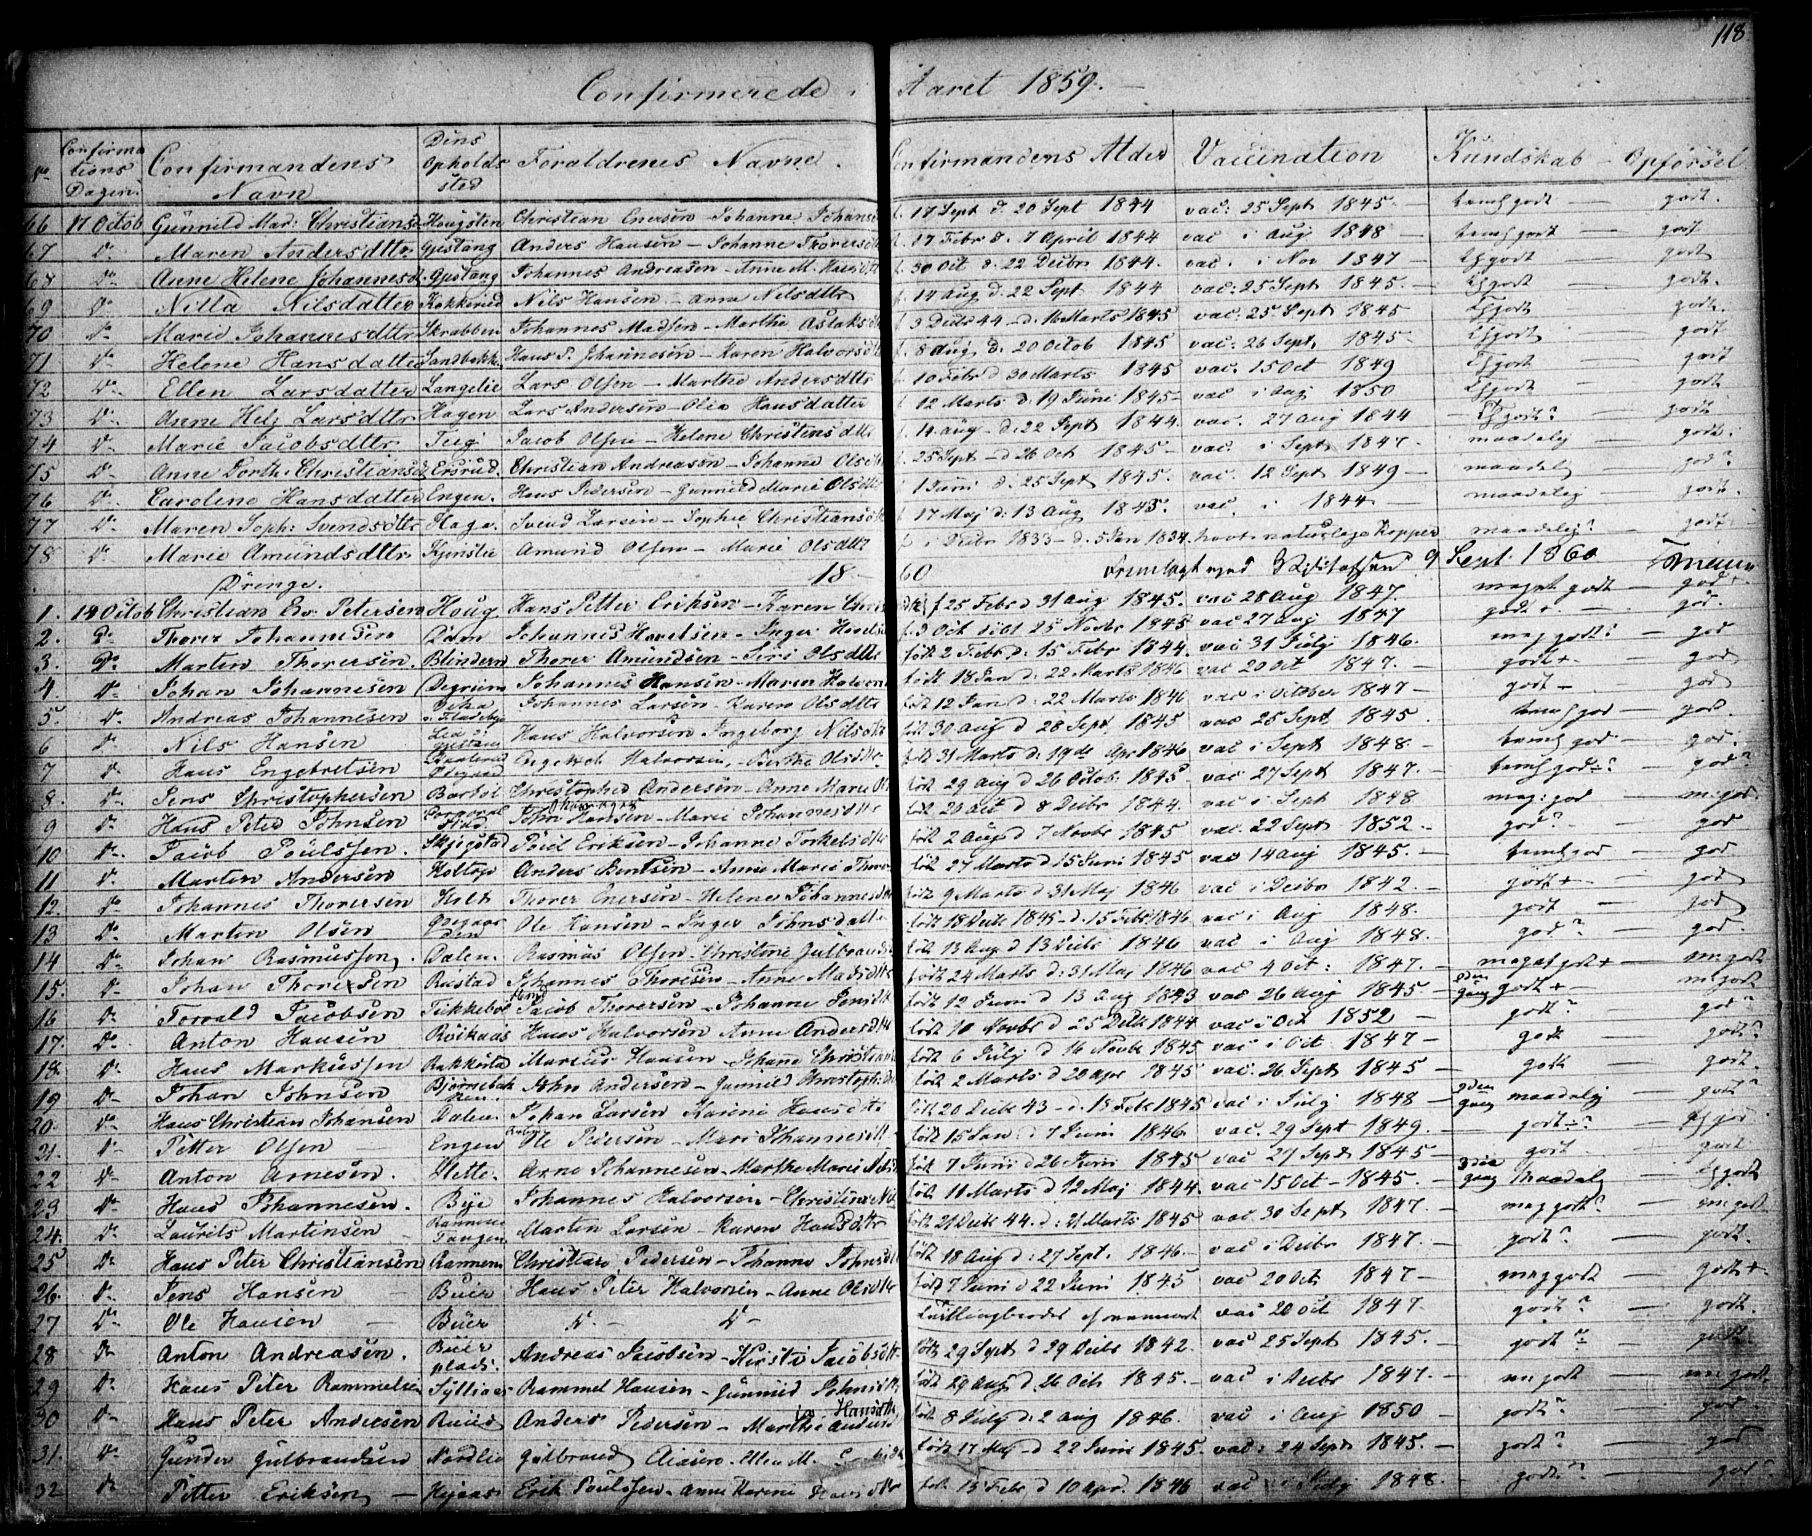 118
Confirmerede i Aaret 1859.
No Confirmations Dagen. Confirmandens Navn Dens Opholdssted Foraldrenes Navne. Confirmandens Alder Vaccination Kundskab - Opførsel
66 17 Octob Gunnild Mar: Christiansd Hougsten Christian Enersen - Johanne Johansd f. 17 Sept d. 20 Sept 1844 vac: 25 Sept 1845 - temlgodt - godt.
67 Do Maren Andersdttr Gjestang Anders Hansen - Johanne Thorersdttr f. 17 Febr d. 7 April 1844 vac i Aug 1848 - temlgodt - godt
68 Do Anne Helene Johannesd Gjestang Johannes Andreasen - Anne M. Hansdttr f. 30 Oct d. 22 Decbr 1844. vac. i Nov 1847 - godt - godt
69 Do Nilla Nilsdatter Kokkerud Nils Hansen - Anna Nilsdttr f. 14 Aug d. 22 Sept 1844 vac: 25 Sept 1845. - godt - godt.
70 Do Marie Johannesdttr Skrabben Johannes Madsen - Marthe Aslaksdttr f. 3 Decbr 44 - d. 16 Marts 1845 vac: 25 Sept 1845 godt - godt
71 Do Helene Hansdatter Sandbakk. Hans P. Johannesen - Karen Halvorsdttr f. 8 Aug d. 20 Octob 1845 vac: 26 Sept. 1845 - godt - godt
72 Do Ellen Larsdatter Langelie Lars Olsen - Marthe Andersdttr f. 10 Febr d 30 Marts 1845 vac. 15 Oct 1849 godt - godt
73 Do Anne Helg Larsdttr Hagen Lars Andersen - Olia Hansdatter f. 12 Marts d. 19 Juni 1845 - vac i Aug 1850 godt - godt
74 Do Marie Jacobsdttr Teig Jacob Olsen - Helene Christensdttr f. 14 Aug - d. 22 Sept 1844. vac. 27 Aug 1844 - godt? - godt
75 Do Anne Dorth. Christiansd Ersrud. Christian Andreasen - Johanne Olsdttr f. 25 Sept - d 26 Oct 1845 - vac i Sept 1847. - maadelig - godt.
76 Do Caroline Hansdatter Engen. Hans Pedersen - Gunnild Marie Olsdttr f. 1 Juni d. 25 Sept 1845. vac. 12 Sept 1849 - maadelig - god?
77 Do Maren Soph: Svendsdttr Haga. Svend Larsen - Sophie Christiansdttr f. 17 Maj d: 13 Aug 1845. vac. i 1844 - maadelig - godt.
78 Do Marie Amundsdttr Kjenslie Amund Olsen - Marie Olsdttr f. i Decbr 1833 - d. 5 Jan 1834. havt naturlige Kopper maadelig? - godt
Drenge. 1860 9 Sept. 1860
1. 14 Octob Christian Ev. Petersen Houg Hans Petter Eriksen - Karen Chris f 25 Febr d 31 Aug 1845. vac 28 Aug 1847. meget godt - god +
2. Do Thorer Johannesen Dam Johannes Havelsen - Inger Havelsd f. 3 Oct døbt 25 Novbr 1845 vac 27 Aug 1847 godt - god.
3. Do Marten Thorersen. Blindern Thorer Amundsen - Siri Olsdttr født 2 Febr d. 15 Febr 1844. vac 31 Julij 1846. meg godt? - god
4 Do Johan Johannesen Degrum Johannes Hansen - Maren Halvors født 18 Jan d. 22 Marts 1846 vac 20 Oct 1847. - godt + - god
5. Do Andreas Johannesen Johannes Larsen - Karen Olsdttr født 12 Jan d: 22 Marts 1846 vac i October 1847 - godt - - god
6 Do Nils Hansen Hans Halvorsen Ingeborg Nilsdttr født 30 Aug d 28 Sept. 1845 vac 25 Sept 1845. temlgod - god.
7 Do Hans Engebretsen Halvorsen - Berthe Olsdttr født 31 Marts d: 19de Apr 1846 vac i Sept 1848 - temlgod - god.
8. Do Jens Christophersen Barbøl Christopher Andersen - Anne Marie Ols født 29 Aug d 26 Octob. 1845 vac 27 Sept 1847. - temlgod? - god?
9 Do Hans Peter Johnsen John Hansen - Marie Johannesdttr født 20 Oct d 8 Decbr 1844. vac i Sept 1848. meg: god - m: god.
10 Do Jacob Poulssen. Skjegstad Poul Eriksen - Johanne Torkelsdttr født 2 Aug d 7 Novbr 1845 vac. 22 Sept 1852. - god? - god
11 Do Marten Andersen Holtop Anders Bentsen - Anne Marie Thorer født 27 Marts d 15 Juni 1845 vac 14 Aug 1845. - temlgod - god
12. Do Johannes Thorersen Holt Thorer Enersen - Helene Johannesdttr født 9 Marts d 31 Maj 1846 vac i Decbr 1842. - godt + - god
13 Do Marten Olsen Ole Hansen - Inger Johnsdatter født 18 Decbr 1845 - d. 15 Febr 1846 vac i Aug 1848. - godt - god
14 Do Johan Rasmussen. Dalen. Rasmus Olsen - Christine Gulbrandsd født 13 Aug d 13 Decbr 1846 vac i Aug 1848. - god? - god.
15. Do Johan Thoresen Rustad Johannes Thoresen - Anne Madsdttr født 24 Marts d: 31 Maj 1846 vac 4 Oct: 1847. - meget godt + - m godt
16 Do Torvald Jacobsen Tukkebøl Jacob Thorersen - Johanne Jensdttr født 12 Juni d 13 Aug 1843 vac 26 Aug 1845 - gang godt + - m godt
17. Do Anton Hansen Røikaas Hans Halvorsen Anne Andersdttr født 10 Novbr d 25 Decbr 1844 vac i Oct 1852 - godt? - god?
18. Do Hans Markussen Bakkestad Marcus Hansen - Johane Christians født 6 Julij d 16 Novbr 1845 vac i Oct 1847 - godt - godt?
19 Do Johan Johnsen Bjørnebæk John Andersen - Gunnild Christophsdttr født 2 Marts d 20 Apr 1845 vac. 26 Sept 1845 - godt - godt.
20. Do Hans Christian Johansen Dalen Johan Larsen Karine Hansdttr født 20 Decbr 43 - d. 18 Febr 1845 vac i Julij 1848 - gang maadelig - godt?
21. Do Petter Olsen Engen Ole Pedersen - Mari Johannesdttr født 15 Jan: d 7 Juni 1846. vac. 29 Sept 1849. - godt -? - god
22 Do Anton Arnesen. Slette. Arne Johannesen - Marthe Marie Nels født 7 Juni d 26 Juni 1845 vac 27 Sept 1845 - godt - godt
23 Do Hans Johannesen. Bye Johannes Halvorsen - Christine Nils født 11 Marts d 12 Maj 1844. vac 15 Oct - 1845. - gang Maadelig - godt
24. Do Laurits Martinsen Tangen Marten Larsen - Karen Hansdttr født 21 Decbr 44. d: 21 Marts 1845 vac 30 Sept 1847. - meg godt? - m godt
25 Do Hans Peter Christiansen Rammen Christian Pedersen - Johanne Johnsdttr født 18 Aug d: 27 Sept. 1846. - vac i Decbr 1847. - godt? - godt.
26. Do Jens Hansen Buer Hans Peter Halvorsen - Anne Olsdttr født 7 Juni d 22 Juni 1845 vac 20 Oct 1847 - meg godt - godt +
27 Do Ole Hansen - Buer Do - Do Tvillingbroder af ovennævnt vac 20 Oct 1847. - godt? - godt.
28 Do Anton Andreasen. Buer plads. Andreas Jacobsen - Kirsti Jacobsdttr født 29 Sept d 29 Decbr 1842. vac 25 Sept 1845. - godt? - godt
29 Do Hans Peter Rammelsen Sylliaas Rammel Hansen - Gunnild Johnsdttr født 29 Aug d 26 Oct 1845. - vac i Decbr 1847. - m godt - m godt.
30 Do Hans Peter Andersen Ruud Anders Pedersen - Marthe Hansdttr født 8 Julij d: 2 Aug 1846. vac i Aug 1850 - godt? - god.
31. Do Gunder Gulbrandsen Nordlie Gulbrand født 17 Maj d 22 Juni 1845. vac: 24 Sept 1845. - godt? - god
32 Do Petter Eriksen - Erik Poulssen - Anne Karine Hansdttr født 15 Febr d 10 Apr. 1846 vac i Julij 1848 - godt? - god?